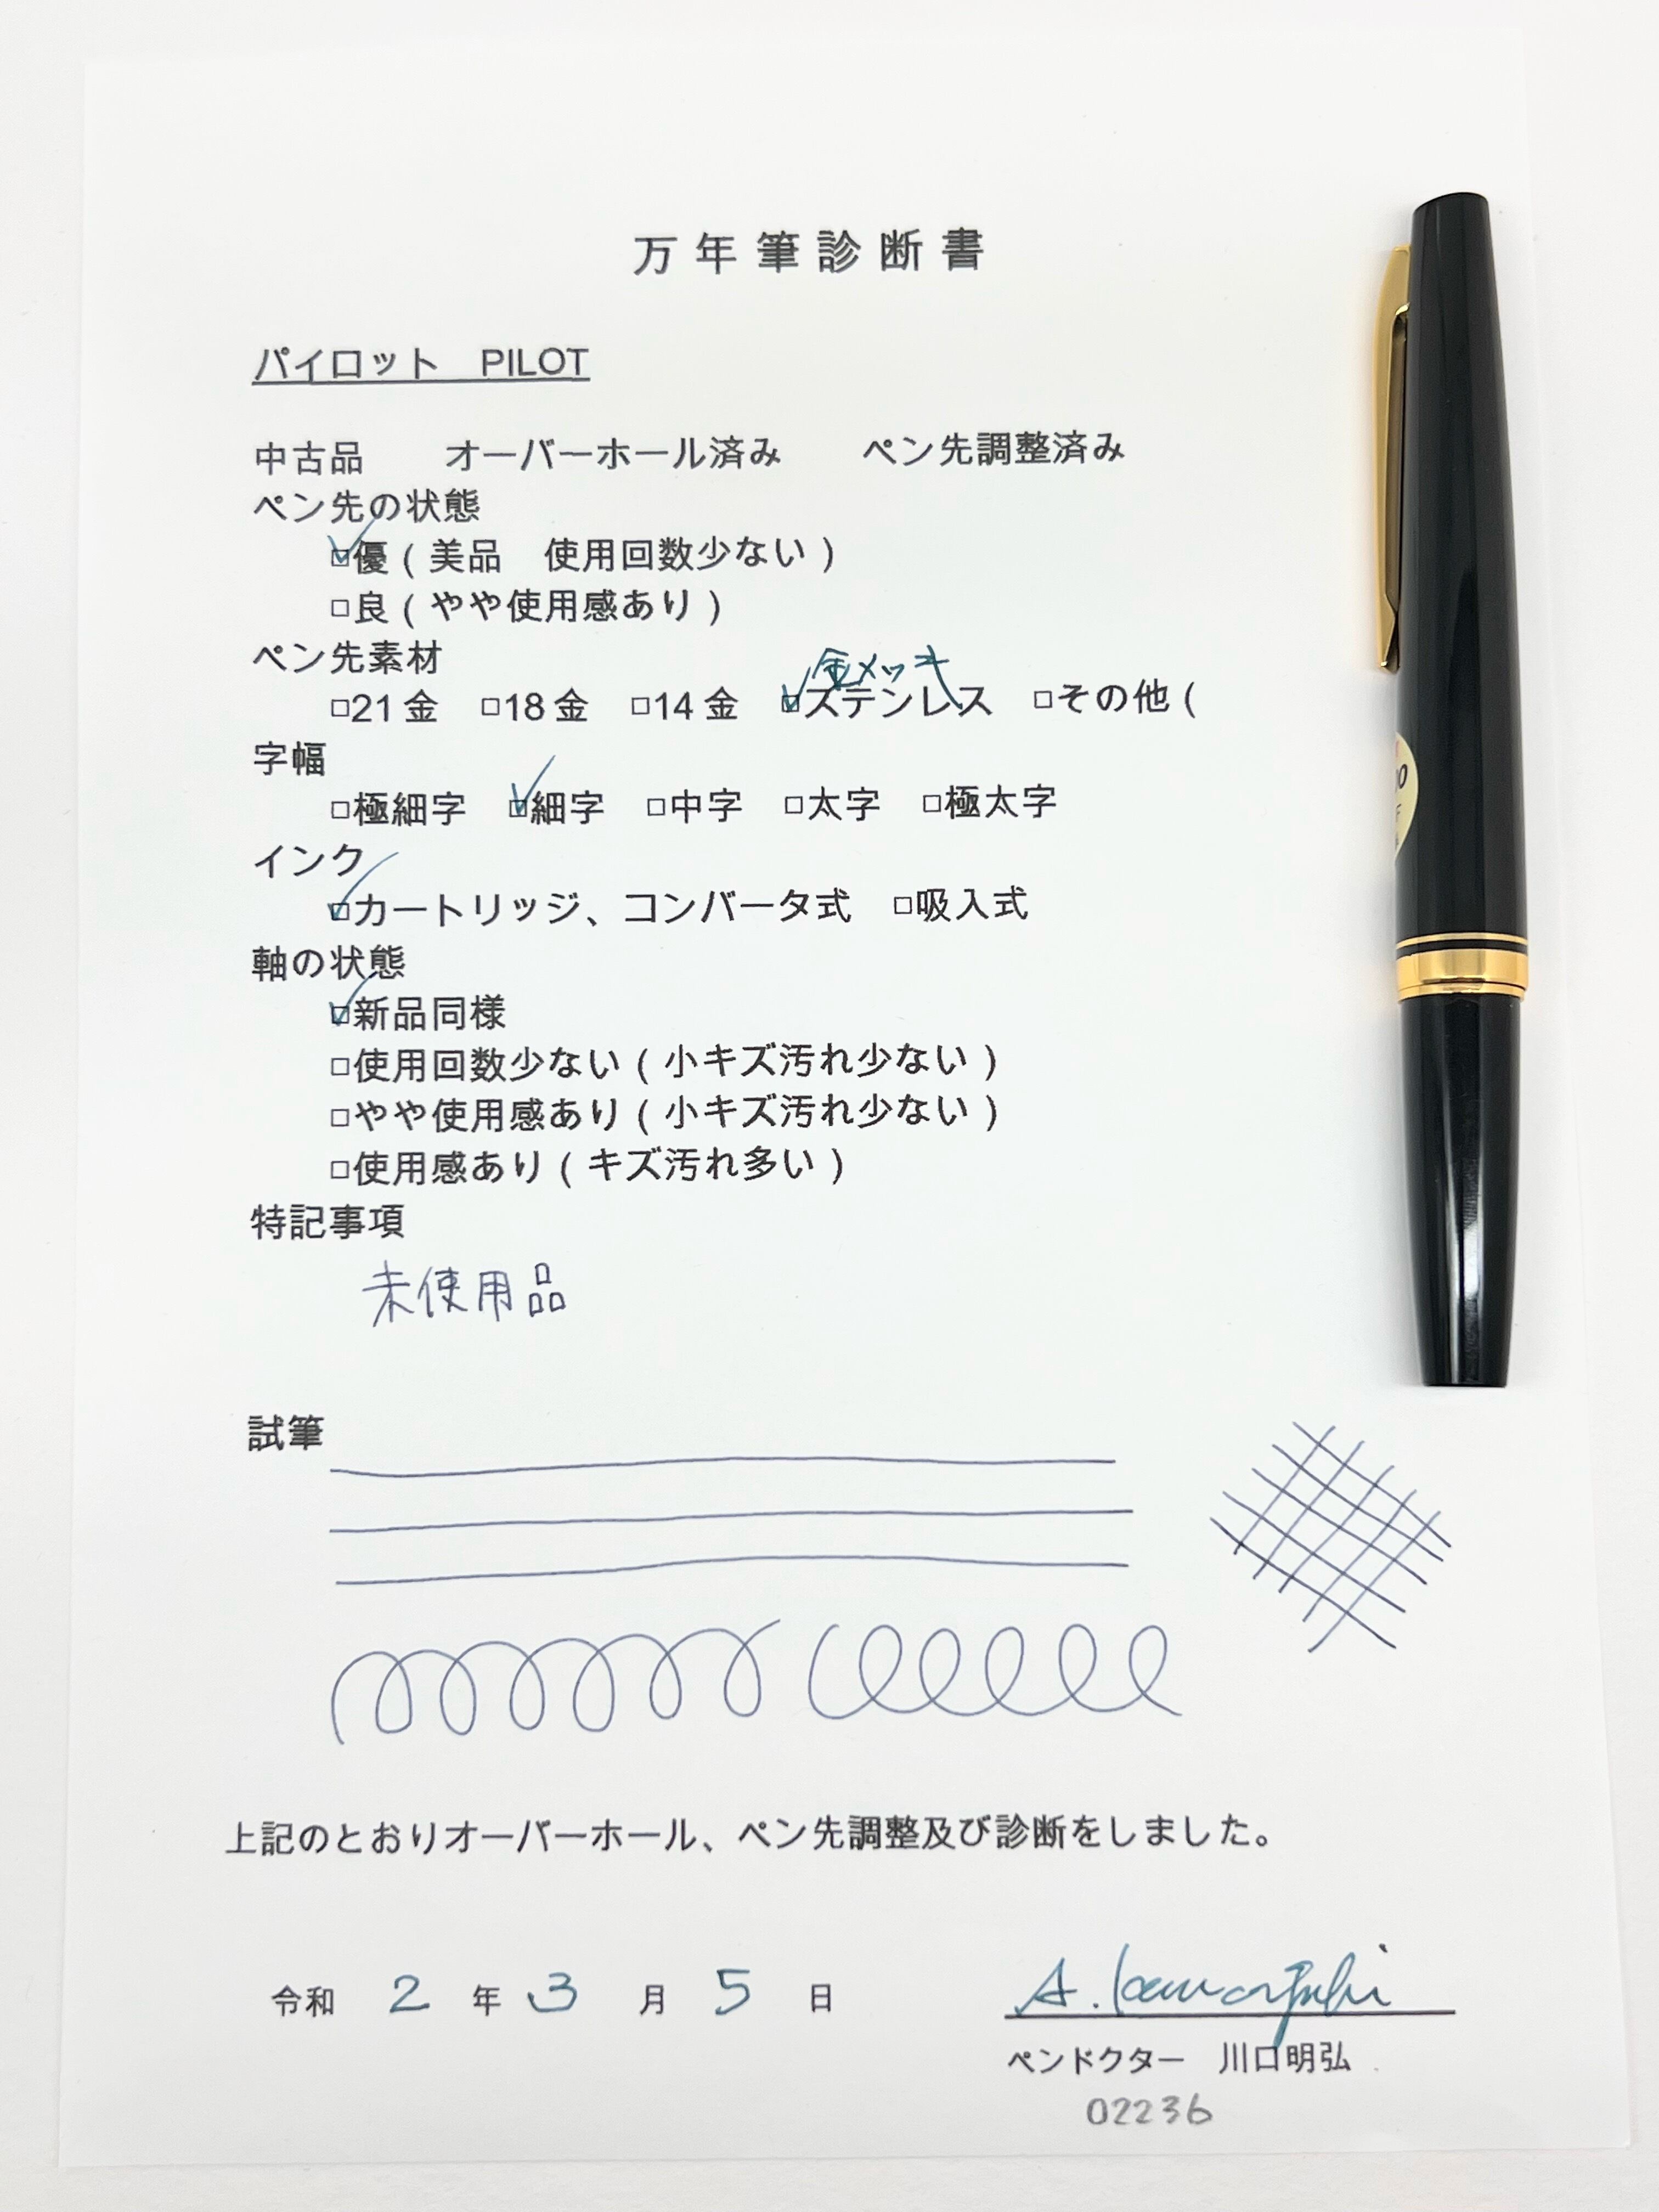 万年筆診断書
パイロット PILOT
中古品 オーバーホール済み ペン先調整済み
ペン先の状態
☑優(美品 使用回数少ない)
□良(やや使用感あり)
ペン先素材
金メッキ
□21金 □18金 □14金 ☑ステンレス □その他(
字幅
□極細字 ☑細字 □中字 □太字 □極太字
インク
☑カートリッジ、コンバータ式 □吸入式
軸の状態
☑新品同様
□使用回数少ない(小キズ汚れ少ない)
□やや使用感あり(小キズ汚れ少ない)
□使用感あり(キズ汚れ多い)
特記事項
未使用品
試筆
上記のとおりオーバーホール、ペン先調整及び診断をしました。
令和 2 年 3 月 5 日
A. Kawaguchi
ペンドクター 川口明弘
02236